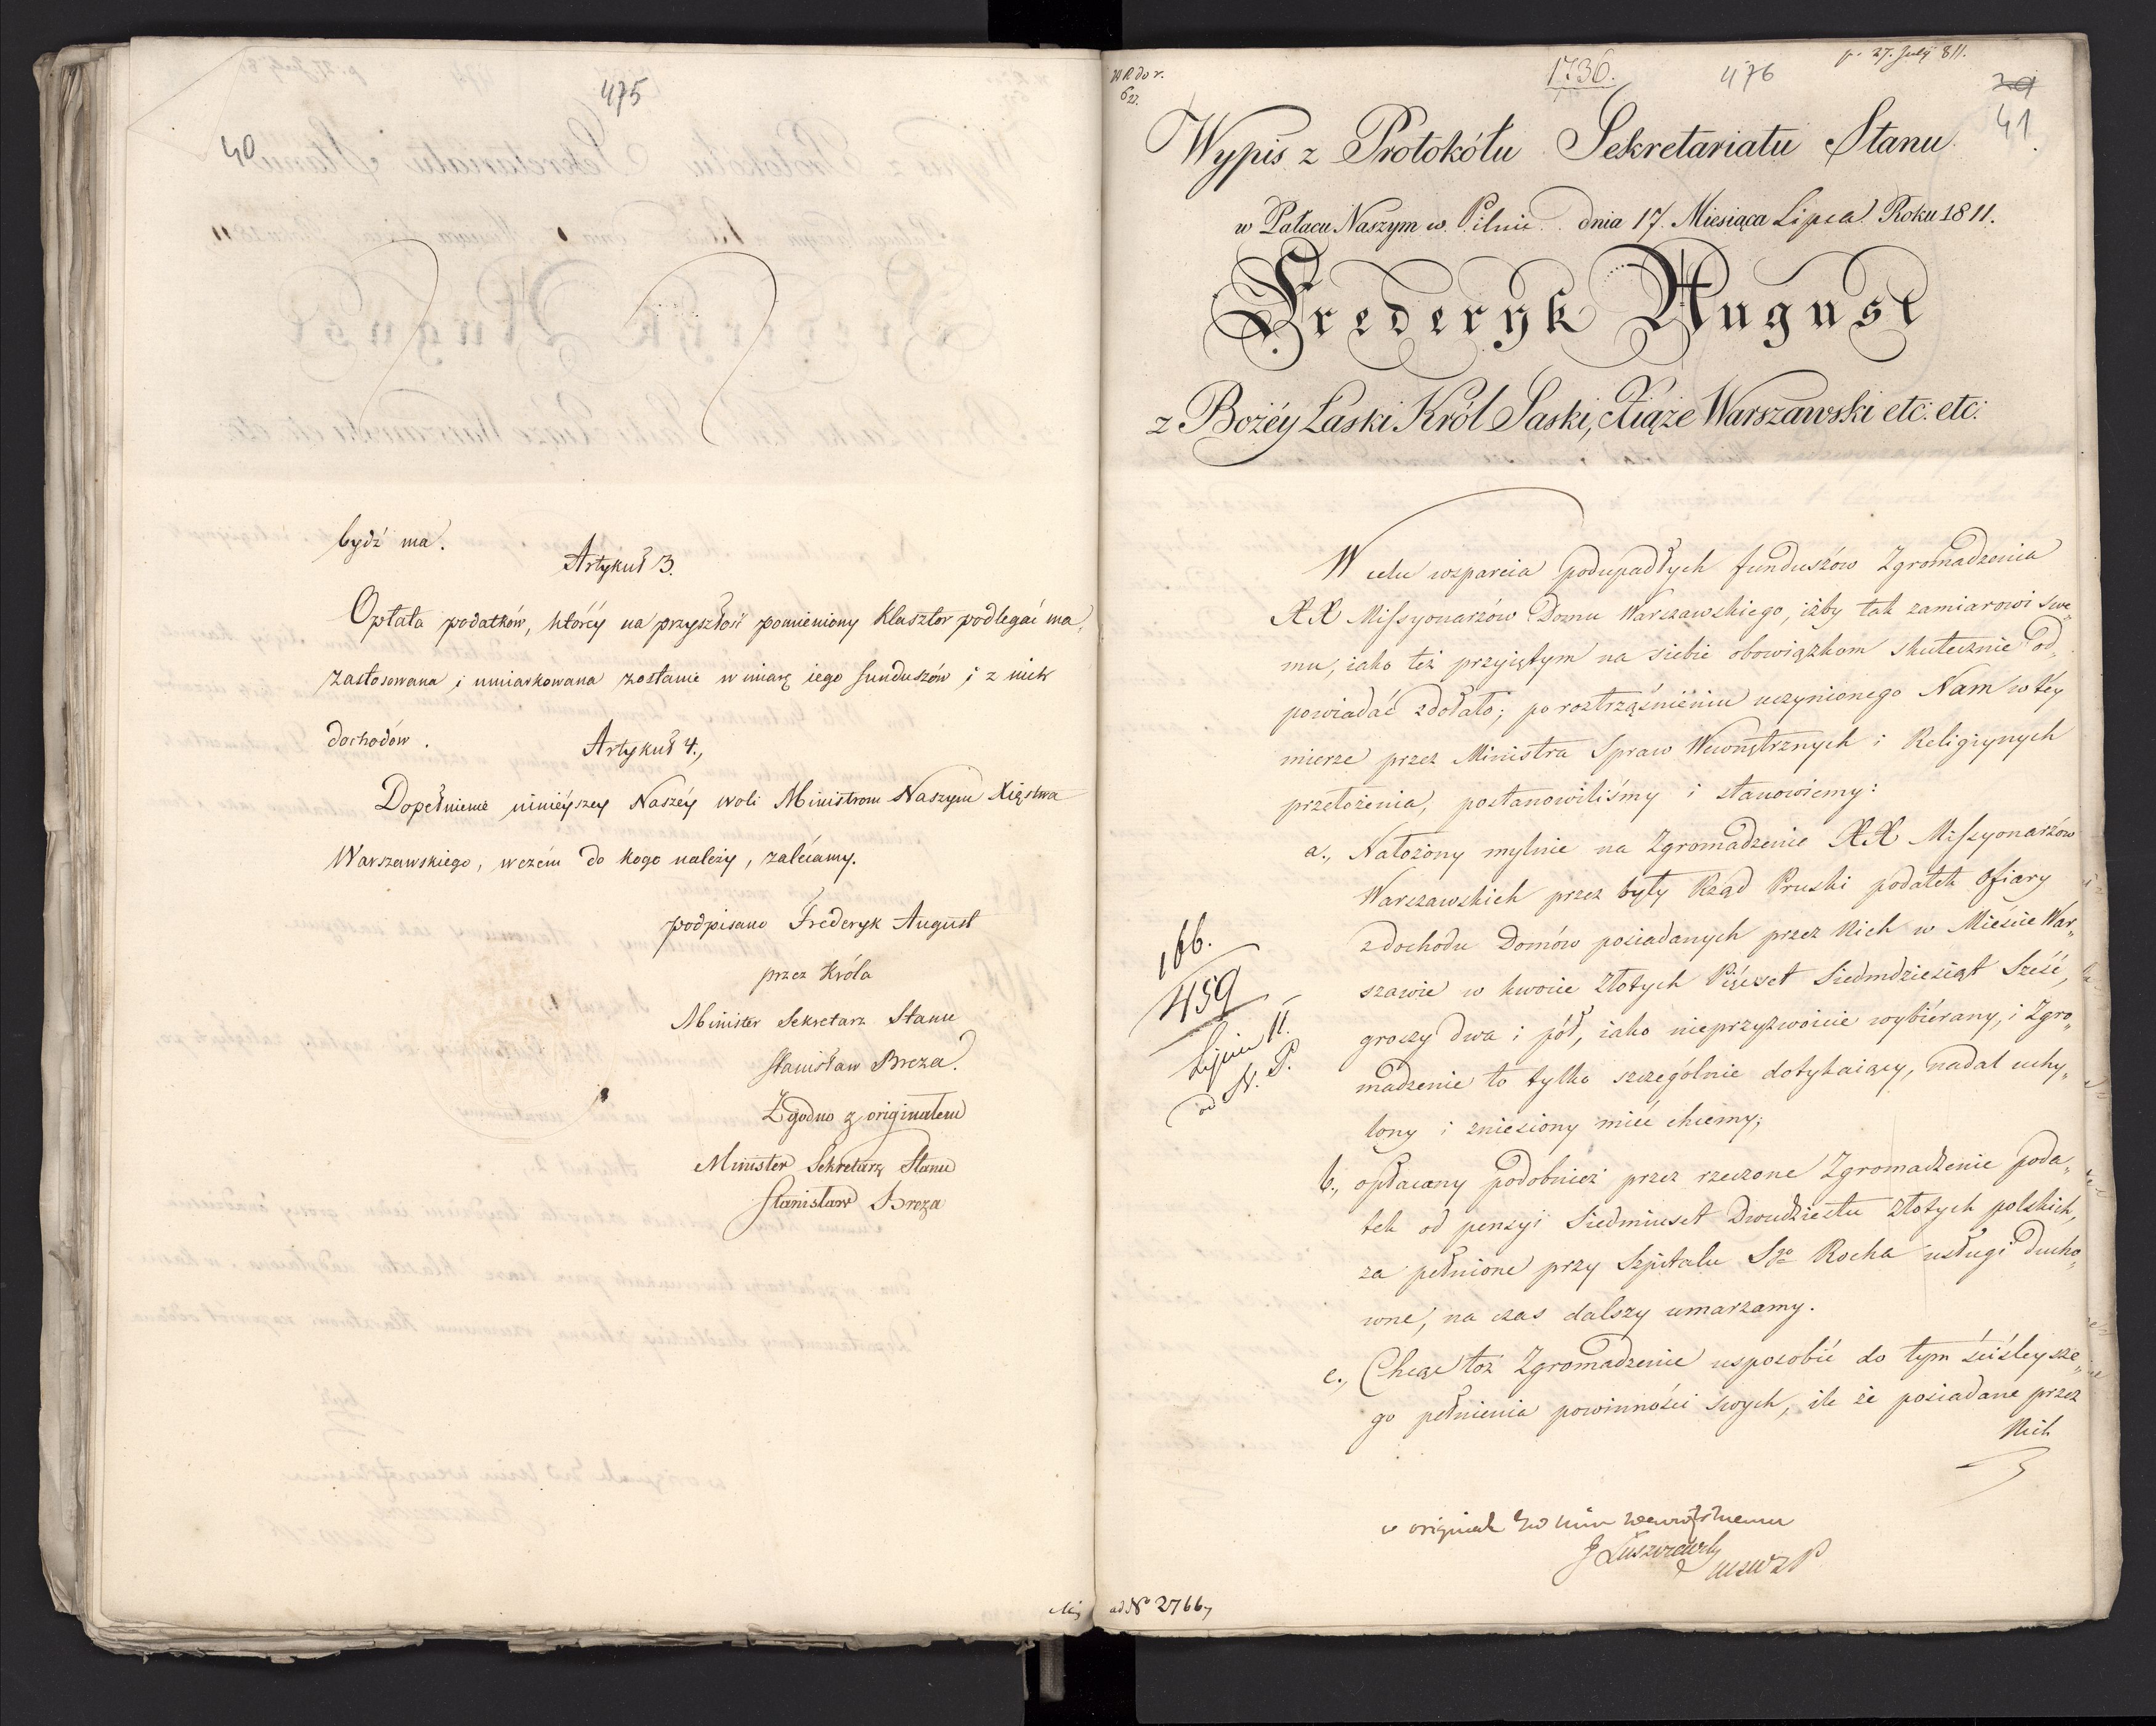 475
40
bydź ma.
Artykuł 3.
Opłata podatków, któréy na przyszłość pomieniony Klasztor podlegać ma,
zastosowana i umiarkowana zostanie w miarę iego funduszów i z nich
dochodów.
Artykuł 4.,
Dopełnienie ninieyszey Naszéy woli Ministrom Naszym Xięstwa
Warszawskiego, wczém do kogo należy, zalecamy.
podpisano Frederyk August
przez Króla
Minister Sekretarz Stanu
Stanisław Breza.
Zgodno z originałem
Minister Sekretarz Stanu
Stanisław Breza
1736.
476
p. 27. July 811.
41.
Wypis z Protokółu Sekretariatu Stanu.
w Pałacu Naszym w Pilnie dnia 17. Miesiąca Lipca Roku 1811.
Frederyk August
z Bożéy Łaski Król Saski, Xiąże Warszawski etc: etc:
W celu wsparcia podupadłych funduszów Zgromadzenia
XX Missyonarzów Domu Warszawskiego, iżby tak zamiarowi swe„
mu, iako też przyiętym na siebie obowiązkom skutecznie od„
powiadać zdołało; po roztrząśnieniu uczynionego Nam w téy
mierze przez Ministra Spraw Wewnętrznych i Religiynych
przełożenia, postanowiliśmy i stanowiemy:
a., Nałożony mylnie na Zgromadzenie XX Missyonarzów
Warszawskich przez były Rząd Pruski podatek Ofiary
z dochodu Domów posiadanych przez Nich w Mieście War„
szawie w kwocie Złotych Pięćset Siedmdziesiąt Sześć,
groszy dwa i pół, iako nieprzyzwoicie wybierany, i Zgro„
madzenie to tylko szczególnie dotykaiący, nadal uchy„
lony i zniesiony mieć chcemy;
166.
459
Lipca 11.
od N. P.
b., opłacany podobnież przez rzeczone Zgromadzenie poda„
tek od pensyi Siedmiuset Dwudziestu złotych polskich,
za pełnione przy Szpitalu Sgo Rocha usługi Ducho„
wne, na czas dalszy umarzamy.
c., Chcąc toż Zgromadzenie usposobić do tym ściśleysze„
go pełnienia powinności swych, ile że posiadane przez
Nich
w originale
ad No 2766,